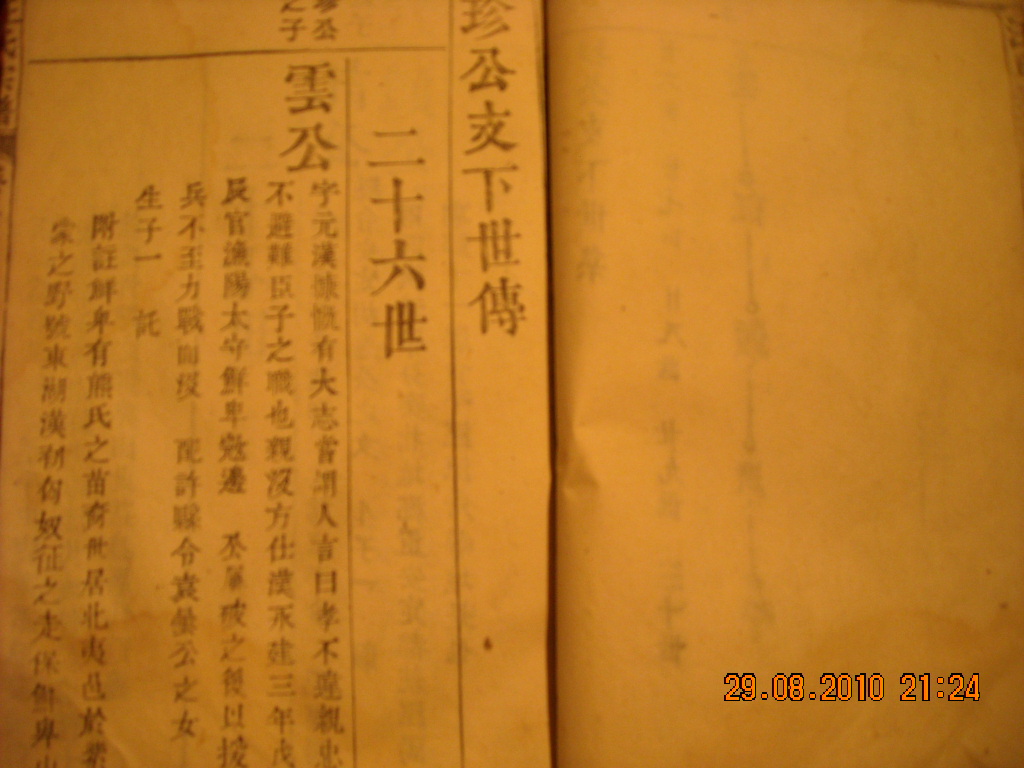 珍公支下世傳
二十六世
珍公
之子
雲公
字元漢慷慨有大志嘗謂人言曰孝不違親忠
不避難臣子之職也親沒方仕漢永建三年戊
辰官漁陽太守鮮卑寇邊 公屢破之後以援
兵不至力戰而沒 配許縣令袁公之女
生子一 託
附註鮮卑有熊氏之苗裔世居北夷邑於紫
蒙之野號東湖漢初匈奴征之走保鮮卑山
29.08.2010 21:24